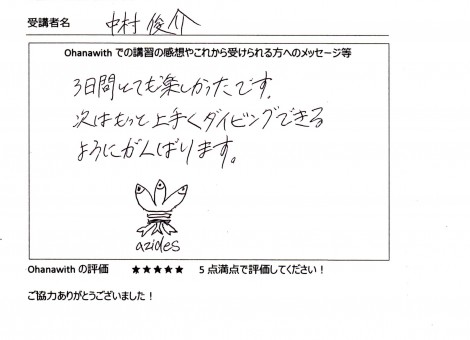 受講者名 中村 俊介
Ohanawith での講習の感想やこれから受けられる方へのメッセージ等
3日間とても楽しかったです。
次はもっと上手くダイビングできる
ようにがんばります。
azides
Ohanawith の評価 ★★★★★ 5 点満点で評価してください！
ご協力ありがとうございました！